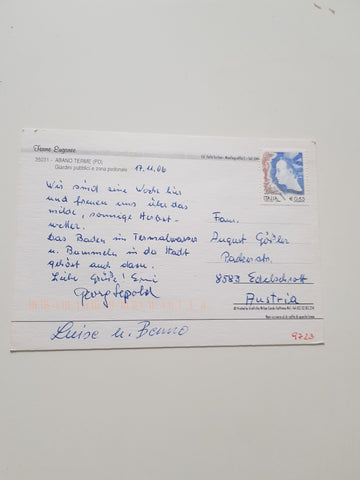 Terme Euganee
35031 - ABANO TERME (PD)
Giardini pubblici e zona pedonale
17.11.06
ITALIA € 0,65
Wir sind eine Woche hier
und freuen uns über das
milde, sonnige Herbst-
wetter.
Das Baden im Termalwasser
u. Bummeln in da Stadt
gehört auch dazu.
Liebe Grüße! Erni
Georg Lepold
Luise u. Benno
Fam.
August Gößler
Packerstr.
8583 Edelschrott
Austria
9723